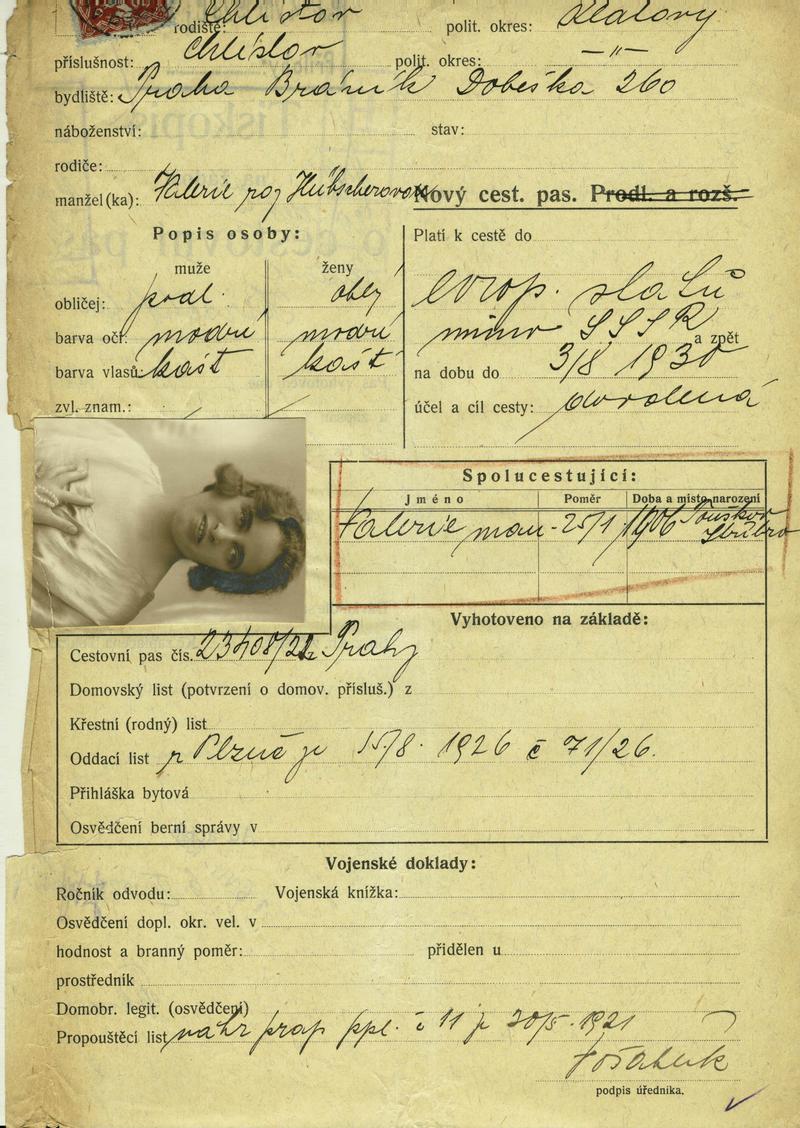 rodiště: Chlístov polit. okres: Klatovy
příslušnost: Chlístov polit. okres: —"—
bydliště: Praha Braník Dobeška 260
náboženství: stav:
rodiče:
manžel(ka): Valerie roz Hübscherova
Nový cest. pas. Prodl. a rozš.
Popis osoby:
muže ženy
obličej: podl. oblý
barva očí: modré modré
barva vlasů: kašt kašt
zvl. znam.:
Platí k cestě do
evrop. států
mimo SSSR a zpět
na dobu do 3/8 1930
účel a cíl cesty: dovolená
Spolucestující:
Jméno Poměr Doba a místo narození
Valerie man. 25/1 1906 Touškov
Stříbro
Vyhotoveno na základě:
Cestovní pas čís. z Prahy
Domovský list (potvrzení o domov. přísluš.) z
Křestní (rodný) list
Oddací list z Plzně 15/8. 1926 č 71/26.
Přihláška bytová
Osvědčení berní správy v
Vojenské doklady:
Ročník odvodu: Vojenská knížka:
Osvědčení dopl. okr. vel. v
hodnost a branný poměr: přidělen u
prostředník
Domobr. legit. (osvědčení)
Propouštěcí list nahr prap ppl. č 11 1921
podpis úředníka.